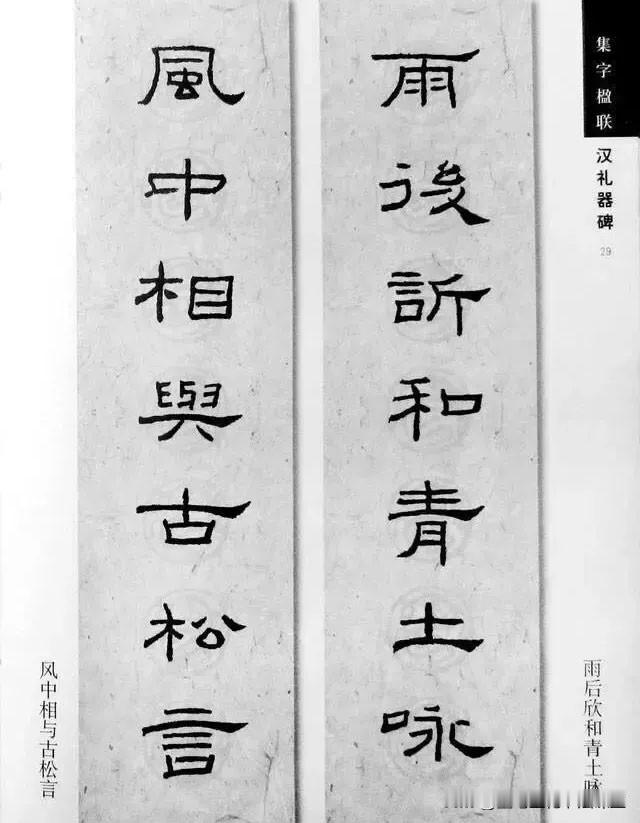 集字楹联 汉礼器碑
29
雨後訢和青土咏
風中相與古松言
雨后欣和青土咏
风中相与古松言